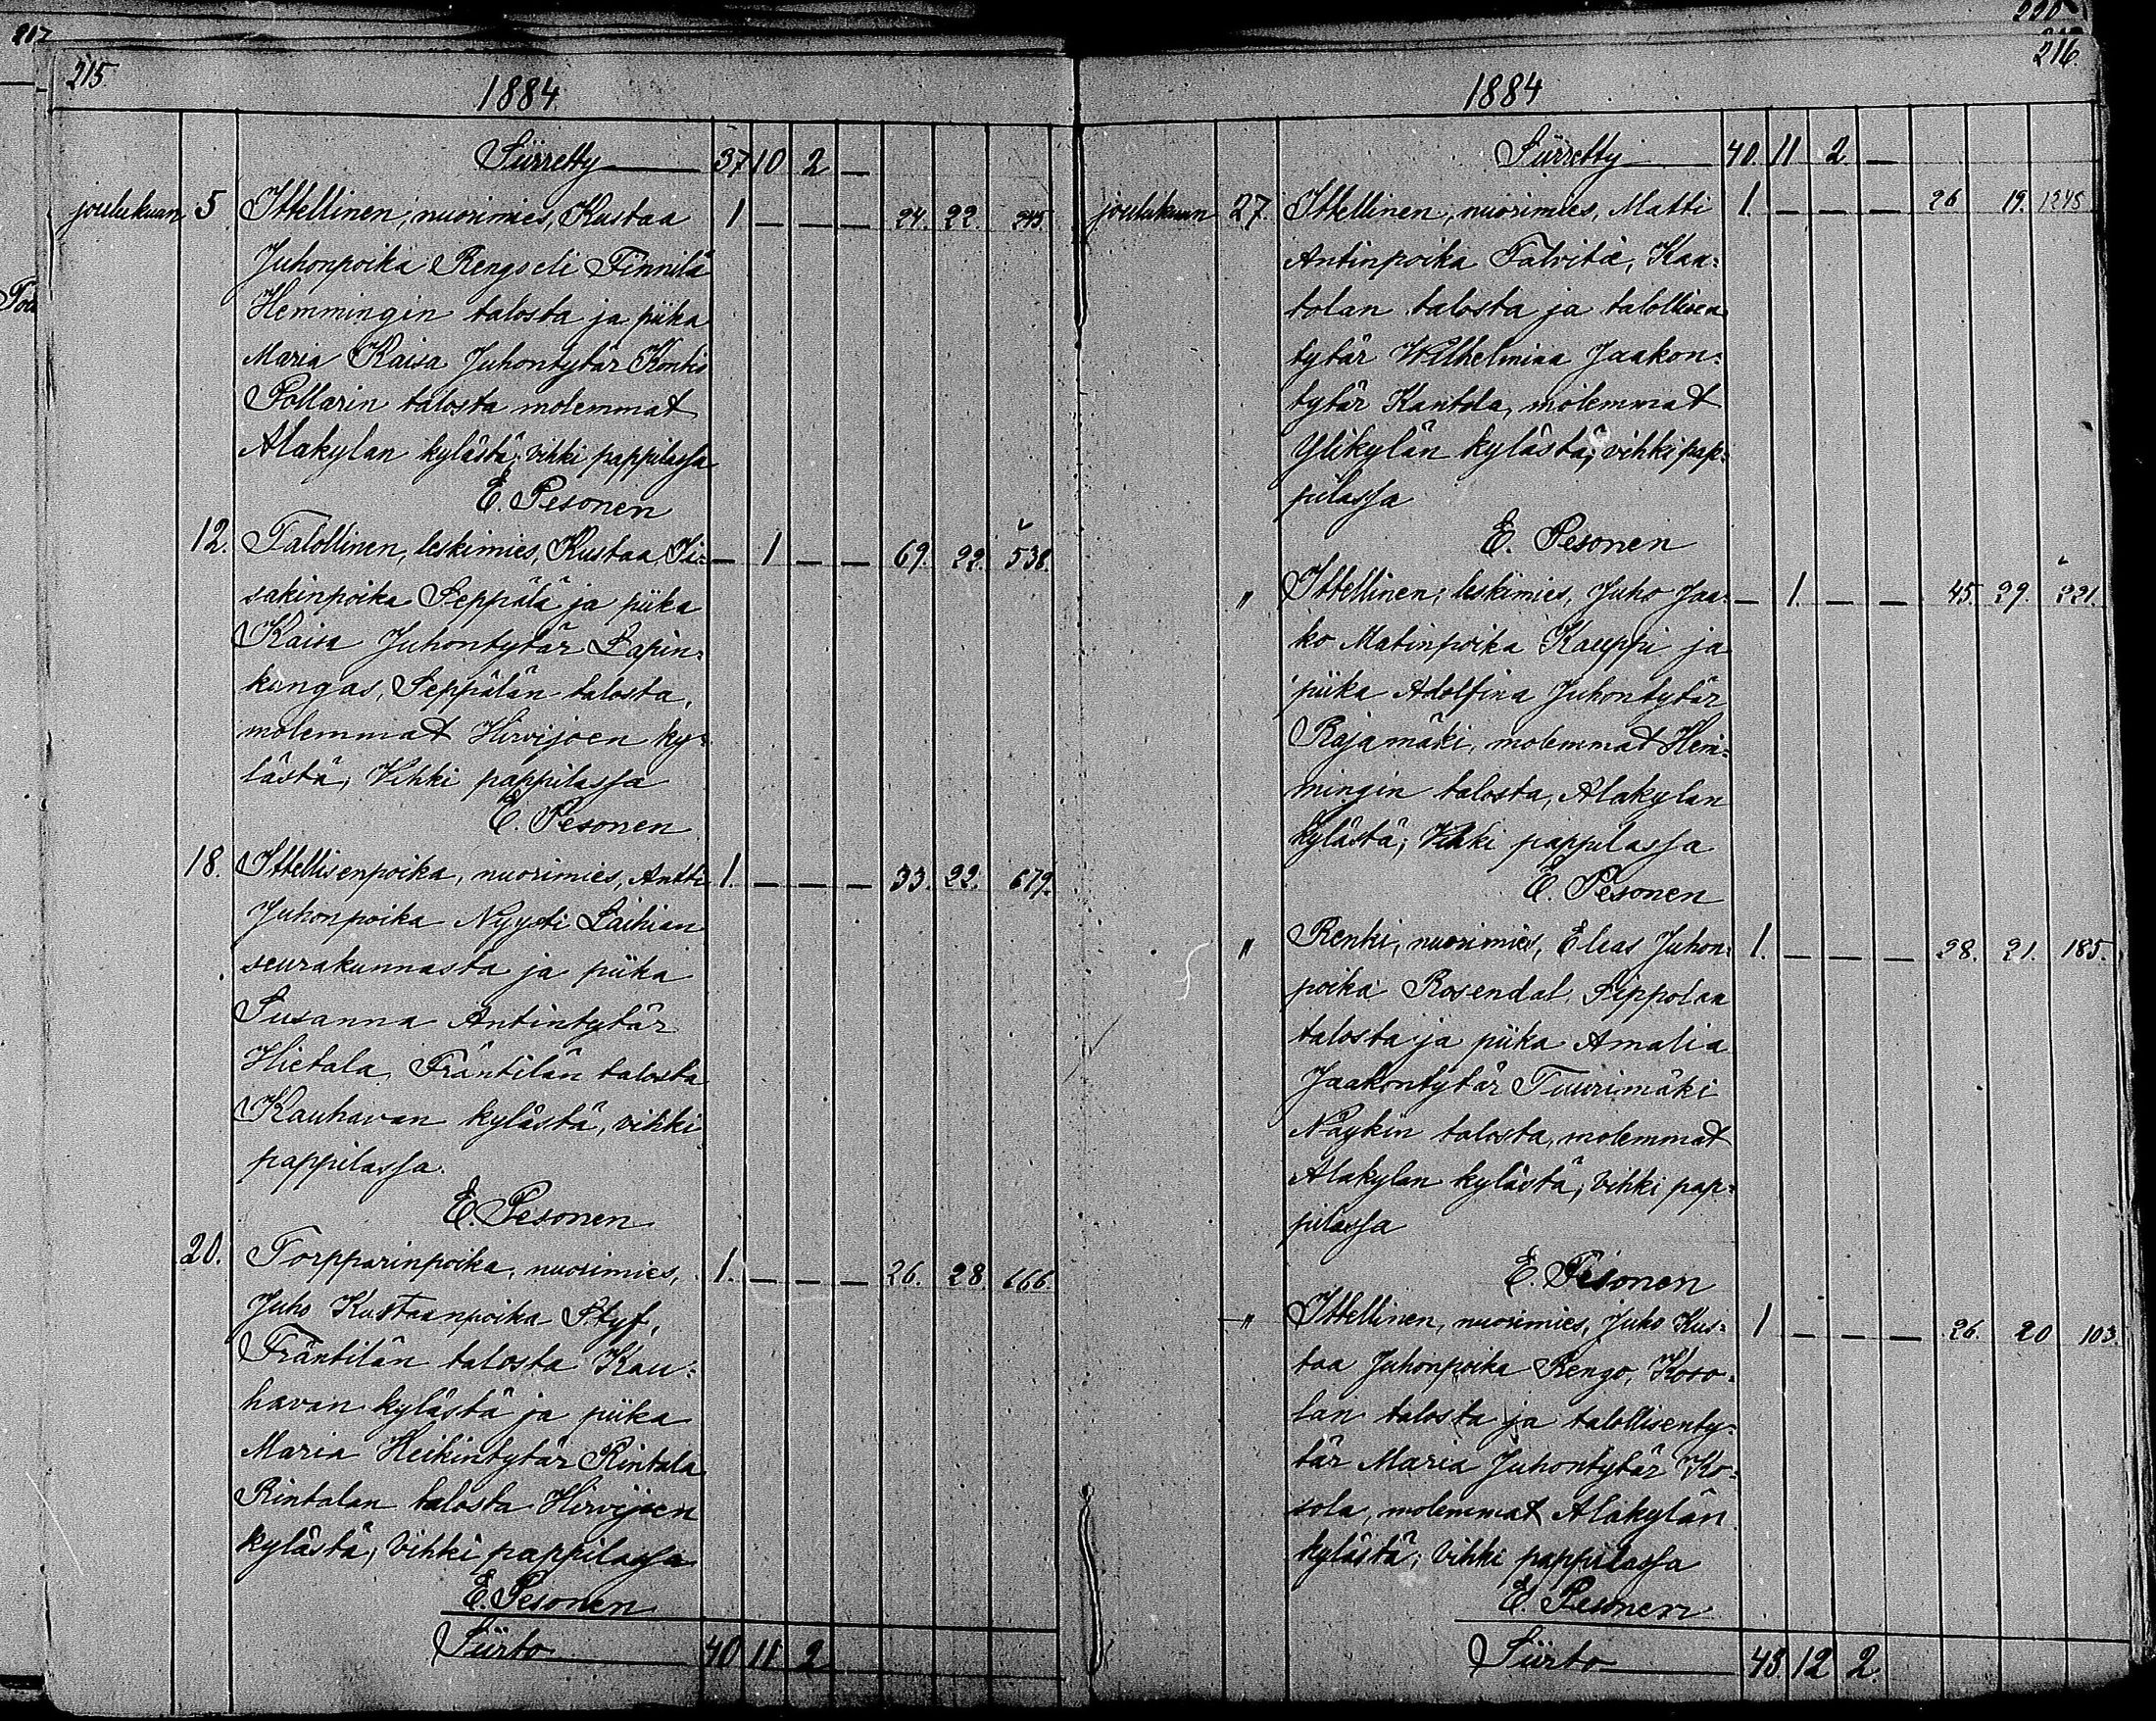 217
215.
1884
Siirretty 37 10 2 —
joulukuun 5 Ittellinen, nuorimies, Kustaa 1 — — — 24. 22. 245.
Juhonpoika Rengo eli Finnilä
Hemmingin talosta ja piika
Maria Kaisa Juhontytär Kontio
Pollarin talosta molemmat
Alakylan kylästä; vihki pappilassa
E. Pesonen
12. Talollinen, leskimies, Kustaa Ii= — 1 — — 69. 22. 538.
sakinpoika Seppälä ja piika
Kaisa Juhontytär Lapin=
kangas, Seppälän talosta,
molemmat Hirvijoen ky=
lästä; Vihki pappilassa
E. Pesonen
18. Ittellisenpoika, nuorimies, Antti 1. — — — 33. 22. 679.
Juhonpoika Nyysti Laihian
seurakunnasta ja piika
Susanna Antintytär
Hietala, Fräntilän talosta
Kauhavan kylästä, vihki
pappilassa.
E. Pesonen
20. Torpparinpoika, nuorimies, 1. — — — 26. 28 666.
Juho Kustaanpoika Styf,
Fräntilän talosta Kau=
havan kylästä ja piika
Maria Heikintytär Rintala
Rintalan talosta Hirvijoen
kylästä; Vihki pappilassa
E. Pesonen
Siirto 40 11 2
220
216.
1884
Siirretty 40. 11 2 —
joulukuun 27. Ittellinen, nuorimies, Matti 1. — — — 26 19. 1245
Antinpoika Talvitie, Kaa=
tolan talosta ja talollisen
tytär Wilhelmina Jaakon=
tytär Kantola, molemmat
Ylikylän kylästä; vihki pap=
pilassa
E. Pesonen
" Ittellinen, leskimies, Juho Jaa= — 1. — — 45. 29. 221.
ko Matinpoika Kauppi ja
piika Adolfina Juhontytär
Rajamäki, molemmat Hem=
mingin talosta, Alakylan
kylästä; Vihki pappilassa
E. Pesonen
" Renki, nuorimies, Elias Juhon= 1. — — — 28. 21. 185.
poika Rosendal, Sippolan
talosta ja piika Amalia
Jaakontytär Tuurimäki
Näykin talosta, molemmat
Alakylan kylästä; Vihki pap=
pilassa
E. Pesonen
" Ittellinen, nuorimies, Juho Kus= 1 — — — 26. 20 103.
taa Juhonpoika Rengo, Koso=
lan talosta ja talollisenty=
tär Maria Juhontytär Ko=
sola, molemmat Alakylän
kylästä; Vihki pappilassa
E. Pesonen
Siirto 43. 12 2.